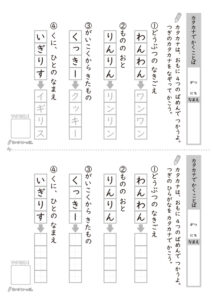 カタカナで かくことば
なまえ
カタカナは、おもに 4つの ばめんで つかうよ。
つぎの カタカナを なぞって かこう。
①どうぶつの なきごえ
わんわん
ワンワン
②ものの おと
りんりん
リンリン
③がいこくから きたもの
くっきー
クッキー
④くに、ひとの なまえ
いぎりす
イギリス
カタカナで かくことば
なまえ
カタカナは、おもに 4つの ばめんで つかうよ。
つぎの ひらがなを カタカナで かこう。
①どうぶつの なきごえ
わんわん
②ものの おと
りんりん
③がいこくから きたもの
くっきー
④くに、ひとの なまえ
いぎりす